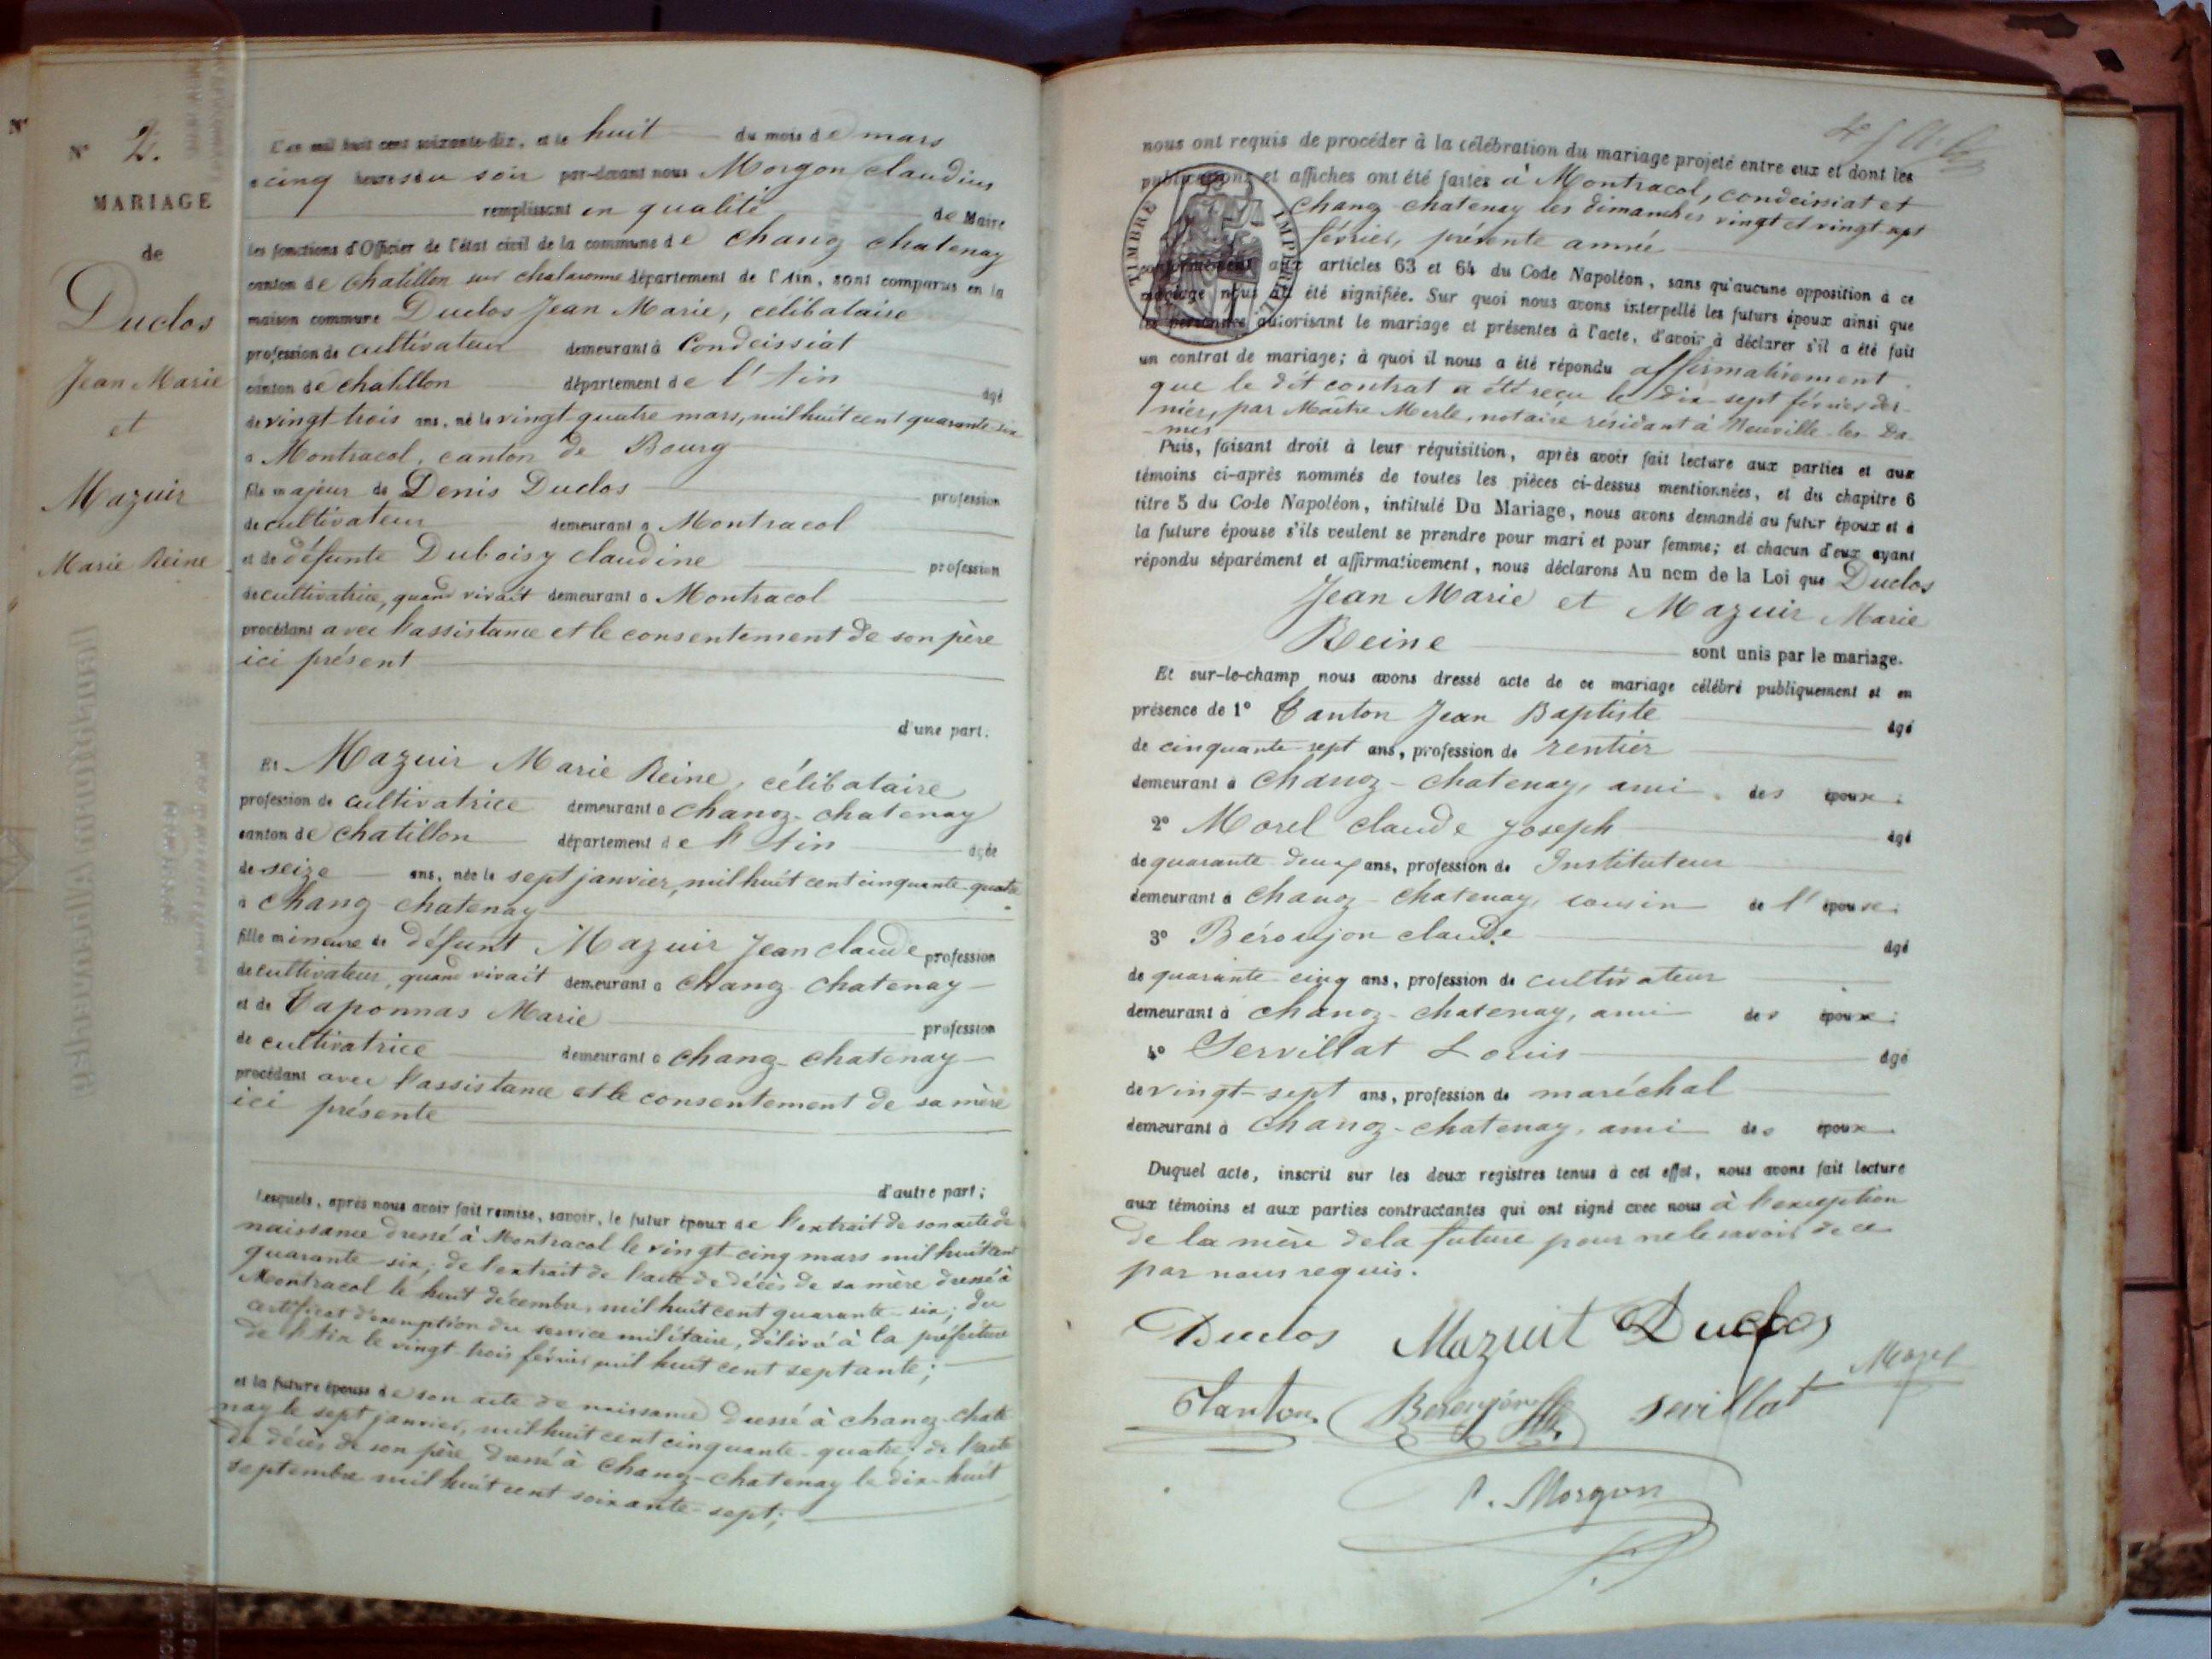 N° 2.
MARIAGE
de
Duclos
Jean Marie
et
Mazuir
Marie Reine
L'an mil huit cent soixante-dix, et le huit du mois de mars
à cinq heures du soir par-devant nous Morgon claudius
remplissant en qualité de Maire
les fonctions d'Officier de l'état civil de la commune de chanoz chatenay
canton de chatillon sur chalaronne département de l'Ain, sont comparus en la
maison commune Duclos Jean Marie, célibataire
profession de cultivateur demeurant à Condeissiat
canton de chatillon département de l'Ain âgé
de vingt-trois ans, né le vingt quatre mars, mil huit cent quarante six
à Montracol, canton de Bourg
fils majeur de Denis Duclos profession
de cultivateur demeurant à Montracol
et de défunte Duboisy claudine profession
de cultivatrice, quand vivait demeurant à Montracol
procédant avec l'assistance et le consentement de son père
ici présent
d'une part.
Et Mazuir Marie Reine, célibataire
profession de cultivatrice demeurant à chanoz-chatenay
canton de chatillon département de l'Ain âgée
de seize ans, née le sept janvier, mil huit cent cinquante-quatre
à chanoz-chatenay
fille mineure de défunt Mazuir Jean claude profession
de cultivateur, quand vivait demeurant à chanoz-chatenay
et de Taponnas Marie profession
de cultivatrice demeurant à chanoz-chatenay
procédant avec l'assistance et le consentement de sa mère
ici présente
d'autre part;
Lesquels, après nous avoir fait remise, savoir, le futur époux de l'extrait de son acte de
naissance dressé à Montracol le vingt-cinq mars mil huit cent
quarante-six; de l'extrait de l'acte de décès de sa mère dressé à
Montracol le huit décembre, mil huit cent quarante-six; du
certificat d'exemption du service militaire, délivré à la préfecture
de l'Ain le vingt-trois février mil huit cent septante;
et la future épouse de son acte de naissance dressé à chanoz-chate
nay le sept janvier, mil huit cent cinquante-quatre; de l'acte
de décès de son père dressé à chanoz-chatenay le dix-huit
septembre mil huit cent soixante-sept;
nous ont requis de procéder à la célébration du mariage projeté entre eux et dont les
publications et affiches ont été faites à Montracol, condeissiat et
chanoz chatenay les dimanches vingt et vingt sept
février, présente année
TIMBRE IMPERIAL
conformément aux articles 63 et 64 du Code Napoléon, sans qu'aucune opposition à ce
mariage nous ait été signifiée. Sur quoi nous avons interpellé les futurs époux ainsi que
les personnes autorisant le mariage et présentes à l'acte, d'avoir à déclarer s'il a été fait
un contrat de mariage; à quoi il nous a été répondu affirmativement
que le dit contrat a été reçu le dix-sept février der-
nier, par Maître Merle, notaire résidant à Neuville-les-Da-
mes
Puis, faisant droit à leur réquisition, après avoir fait lecture aux parties et aux
témoins ci-après nommés de toutes les pièces ci-dessus mentionnées, et du chapitre 6
titre 5 du Code Napoléon, intitulé Du Mariage, nous avons demandé au futur époux et à
la future épouse s'ils veulent se prendre pour mari et pour femme; et chacun d'eux ayant
répondu séparément et affirmativement, nous déclarons Au nom de la Loi que Duclos
Jean Marie et Mazuir Marie
Reine sont unis par le mariage.
Et sur-le-champ nous avons dressé acte de ce mariage célébré publiquement et en
présence de 1° Tanton Jean Baptiste âgé
de cinquante-sept ans, profession de rentier
demeurant à chanoz-chatenay, ami des époux.
2° Morel claude Joseph âgé
de quarante deux ans, profession de Instituteur
demeurant à chanoz-chatenay, cousin de l'épouse.
3° Béroujon claude âgé
de quarante cinq ans, profession de cultivateur
demeurant à chanoz-chatenay, ami des époux.
4° Servillat Louis âgé
de vingt-sept ans, profession de maréchal
demeurant à chanoz-chatenay, ami des époux
Duquel acte, inscrit sur les deux registres tenus à cet effet, nous avons fait lecture
aux témoins et aux parties contractantes qui ont signé avec nous à l'exception
de la mère de la future pour ne le savoir de ce
par nous requis.
Duclos Mazuit Duclos
Morel
Tanton. Beroujon Sevillat
C. Morgon